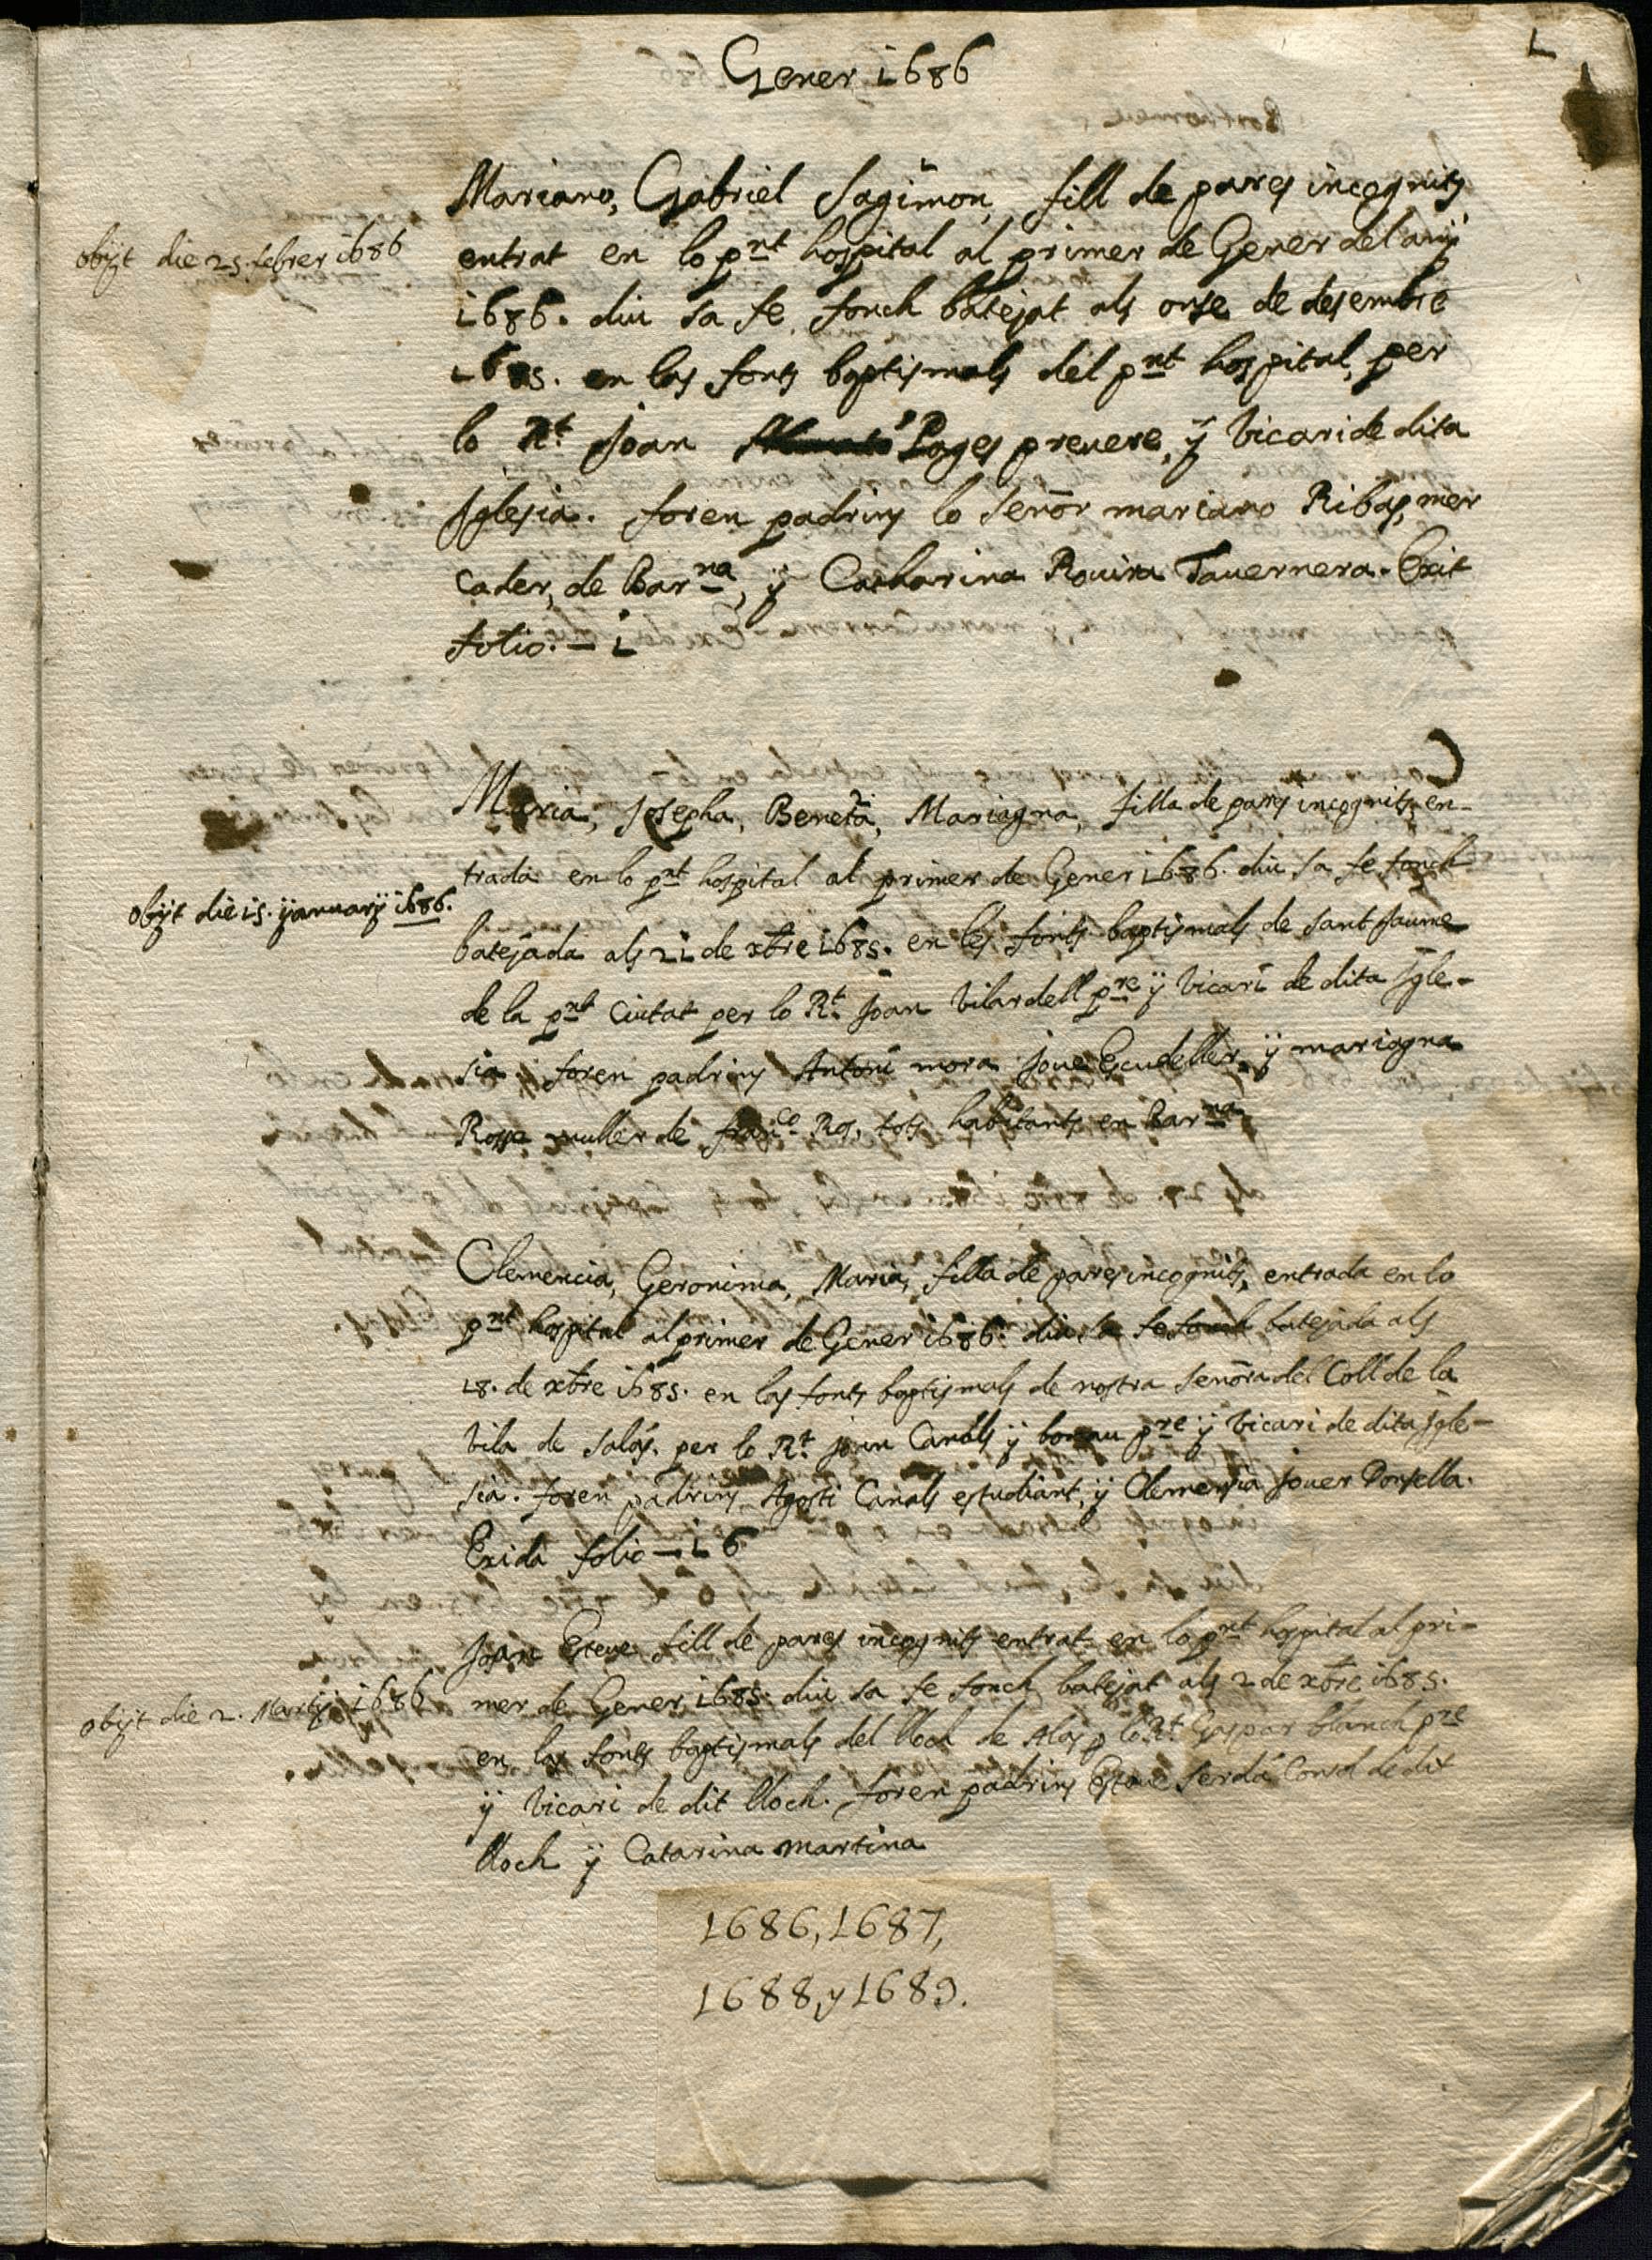 1
Gener 1686
Mariano, Gabriel Sagimon, fill de pares incognits
obijt die 25 febrer 1686
entrat en lo pnt hospital al primer de Gener del any
1686. diu sa fe fonch batejat als onse de desembre
1685. en las fonts baptismals del pnt hospital, per
lo Rt Joan Pages prevere, ÿ Vicari de dita
Iglesia. foren padrins lo señor mariano Ribas, mer
cader, de Barna, ÿ Catharina Rovira Tavernera. Exit
folio. - 1
Maria, Josepha, Beneta, Mariagna, filla de pares incognits, en-
trada en lo pnt hospital al primer de Gener 1686. diu sa fe fonch
obijt die 15. ÿanuarÿ 1686.
batejada als 21 de xbre 1685. en les fonts baptismals de sant Jaume
de la pnt Ciutat per lo Rt Joan Vilardell pre ÿ Vicari de dita Igle-
sia. foren padrins Antoni mora Jove Escudeller, ÿ mariagna
Rossa muller de franco Ros, tots habitants en Barna
Clemencia, Geronima, Maria, filla de pares incognits, entrada en lo
pnt hospital al primer de Gener 1686. diu sa fe fonch batejada als
18. de xbre 1685. en las fonts baptismals de nostra señora del Coll de la
Vila de Salás. per lo Rt Joan Canals ÿ pre ÿ Vicari de dita Igle-
sia. foren padrins Agosti Canals estudiant, ÿ Clemensia Jover Donsella.
Exida folio - 16
Joan Esteve fill de pares incognits entrat en lo pnt hospital al pri-
obijt die 2. Martij 1686
mer de Gener 1685. diu sa fe fonch batejat als 2 de xbre 1685.
en las fonts baptismals del lloch de Alos p lo Rt Gaspar blanch pre
ÿ Vicari de dit lloch. foren padrins Esteve Serdá Consol de dit
lloch ÿ Catarina martina
1686, 1687,
1688, y 1689.